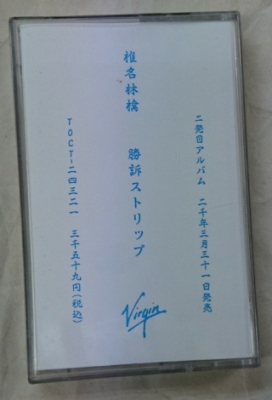 二発目アルバム 二千年三月三十一日発売
椎名林檎 勝訴ストリップ
TOCT-二四三二一 三千五十九円(税込)
Virgin